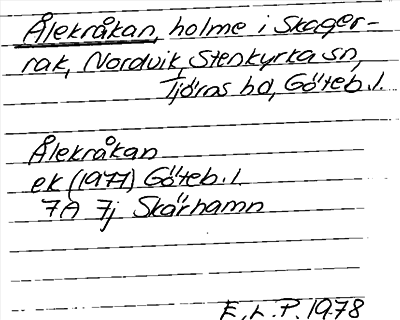 Ålekråkan, holme i Skager-
rak, Nordvik, Stenkyrka sn,
Tjörns hd, Göteb. l.
Ålekråkan
ek (1977) Göteb. l.
7A 7j Skärhamn
E. L. P. 1978